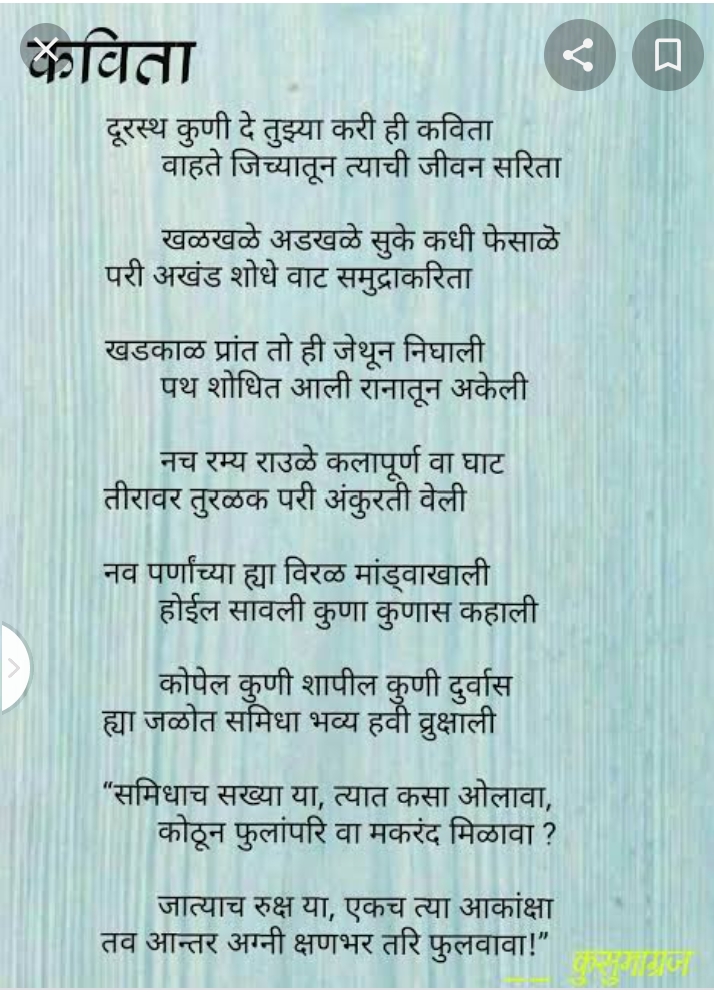 कविता
दूरस्थ कुणी दे तुझ्या करी ही कविता
वाहते जिच्यातून त्याची जीवन सरिता
खळखळे अडखळे सुके कधी फेसाळे
परी अखंड शोधे वाट समुद्राकरिता
खडकाळ प्रांत तो ही जेथून निघाली
पथ शोधित आली रानातून अकेली
नच रम्य राउळे कलापूर्ण वा घाट
तीरावर तुरळक परी अंकुरती वेली
नव पर्णांच्या ह्या विरळ मांड्वाखाली
होईल सावली कुणा कुणास कहाली
कोपेल कुणी शापील कुणी दुर्वास
ह्या जळोत समिधा भव्य हवी व्रुक्षाली
“समिधाच सख्या या, त्यात कसा ओलावा,
कोठून फुलांपरि वा मकरंद मिळावा ?
जात्याच रुक्ष या, एकच त्या आकांक्षा
तव आन्तर अग्नी क्षणभर तरि फुलवावा!”
__ कुसुमाग्रज